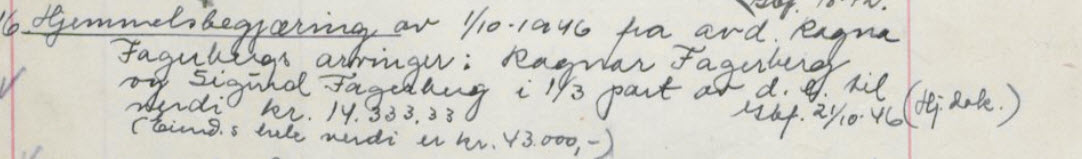 16. Hjemmelsbegjæring av 1/10-1946 fra avd. Ragna
Fagerbergs arvinger: Ragnar Fagerberg
og Sigurd Fagerberg i 1/3 part av d. e. til
verdi kr. 14.333,33 tgbf. 21/10-46 (Hj.dok.)
(Eiend.s hele verdi er kr. 43.000,-)